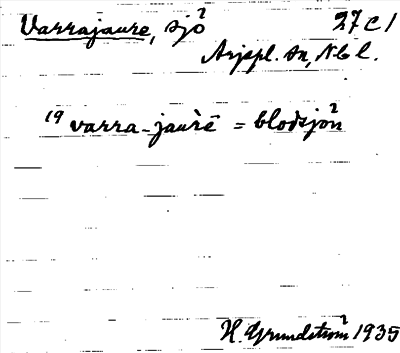 Varrajaure, sjö 27 C 1
Arjepl. sn, Nbl.
19 varra-jaùrē = blodsjön
H. Grundström 1935